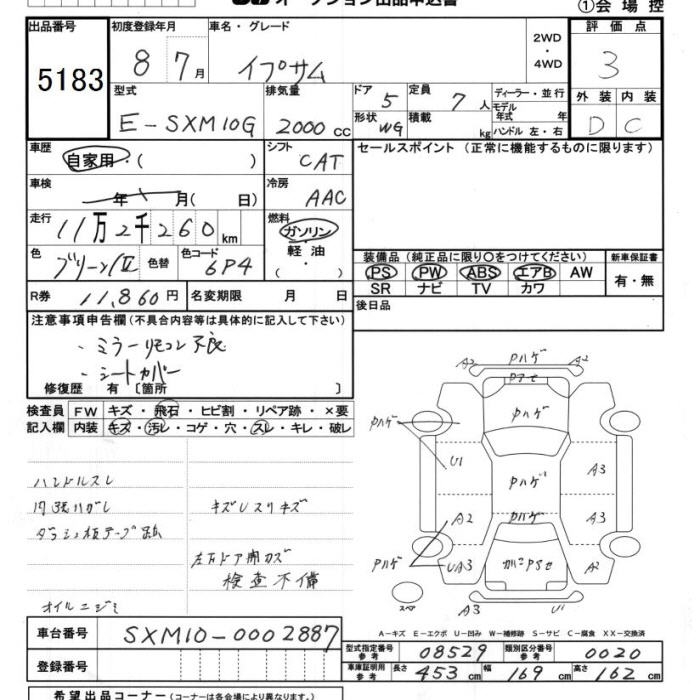 オークション出品申込書
①会場控
出品番号 5183
初度登録年月 8 7月
車名・グレード イプサム
2WD・4WD
評価点 3
型式 E-SXM10G
排気量 2000cc
ドア 5
形状 WG
定員 7人
積載 kg
ディーラー・並行
モデル年式 年
ハンドル 左・右
外装 内装
D C
車歴 自家用・( )
シフト CAT
セールスポイント (正常に機能するものに限ります)
車検 年 月( 日)
冷房 AAC
走行 11万2千260km
燃料 ガソリン・軽油・( )
色 グリーン/Ⅱ 色替 色コード 6P4
装備品 (純正品に限り○をつけてください) 新車保証書
PS PW ABS エアB AW 有・無
SR ナビ TV カワ
R券 11,860円 名変期限 月 日
後日品
注意事項申告欄(不具合内容等は具体的に記入して下さい)
・ミラーリモコン不良
・シートカバー
修復歴 有〔箇所 〕
検査員 FW キズ・飛石・ヒビ割・リペア跡・×要
記入欄 内装 キズ・汚レ・コゲ・穴・スレ・キレ・破レ
ハンドルスレ
内張ハガレ キズUスリキズ
ダッシュ板テープ跡
検査不備
オイルニジミ
A2 Pハゲ A2
Pハゲ
Pハゲ
U1 Pハゲ A3
A2 Pハゲ A3
Pハゲ UA3 A2
スペア A3 U1
A-キズ E-エクボ U-凹み W-補修跡 S-サビ C-腐食 XX-交換済
車台番号 SXM10-0002887
登録番号
型式指定番号 参考 08529 類別区分番号 参考 0020
車庫証明用 参考 長さ 453cm 幅 169cm 高さ 162cm
希望出品コーナー(コーナーは各会場により異なります。)